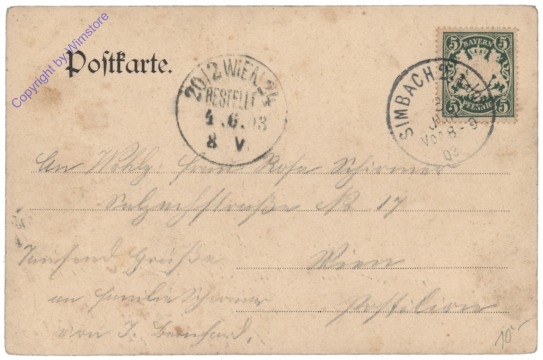 Copyright by Wimstore
Postkarte.
20/2 WIEN 24
BESTELLT
4.6.03
8 V.
BAYERN
5 5
PFENNIG
5 5
SIMBACH
Vor 8-9
03
An Wohlg. Frau Rosa Schirmer
Salzachstraße № 17
Tausend Grüße Wien
an Familie Schirmer
von J. Bernhard.
10.-